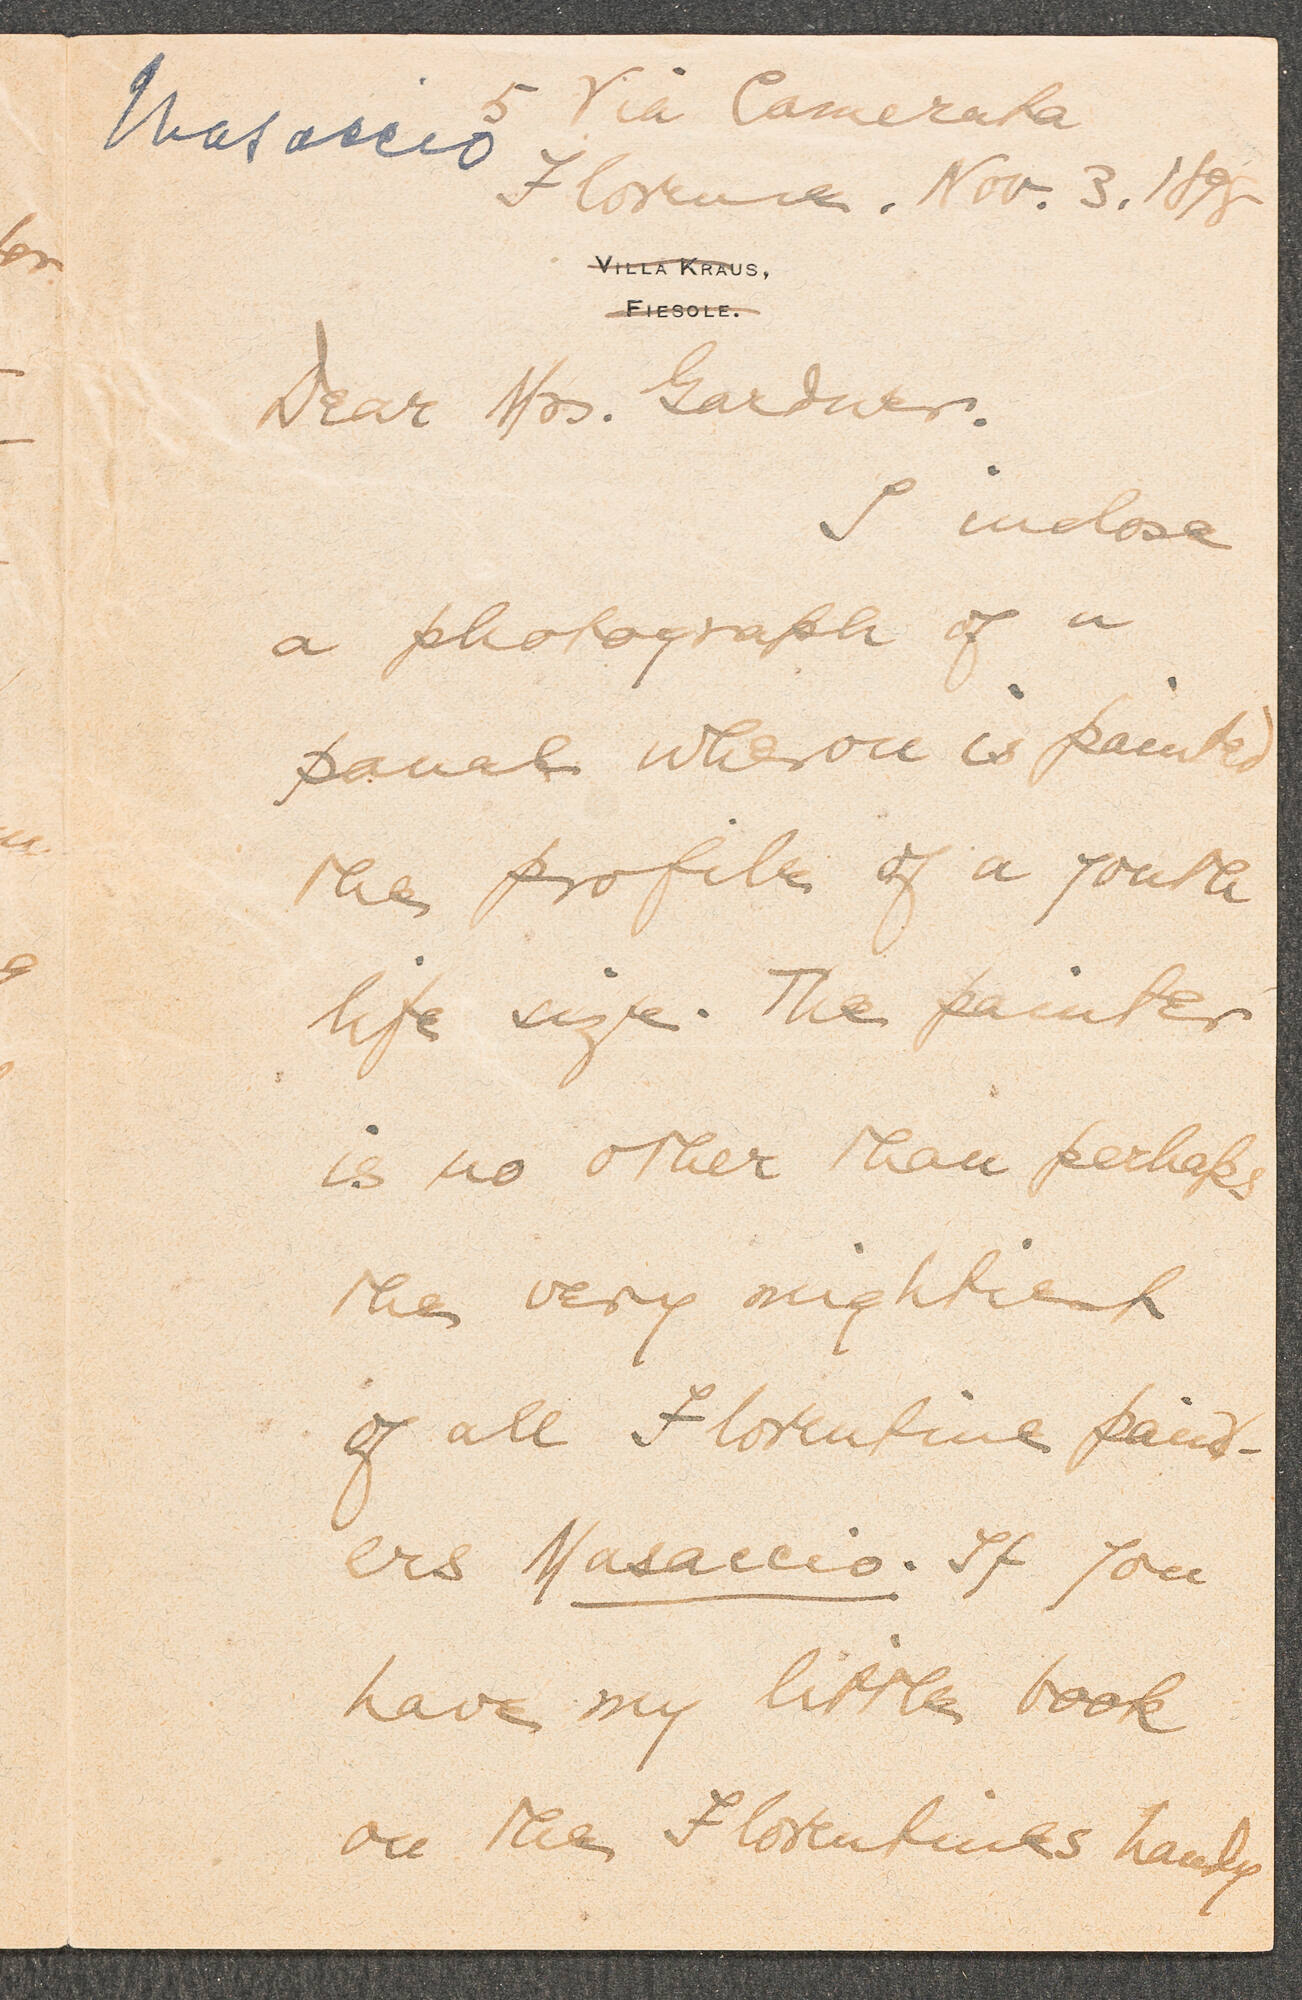 Masaccio
5 Via Camerata
Florence. Nov. 3. 1898
VILLA KRAUS,
FIESOLE.
Dear Mrs. Gardner.
I inclose
a photograph of a
panel wheron is painted
the profile of a youth
life size. The painter
is no other than perhaps
the very mightiest
of all Florentine paint-
ers Masaccio. If you
have my little book
on the Florentines handy